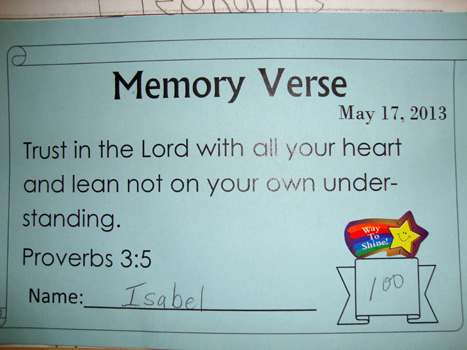 Elephants
Memory Verse
May 17, 2013
Trust in the Lord with all your heart
and lean not on your own under-
standing.
Proverbs 3:5
Way
To
Shine!
Name: Isabel
100